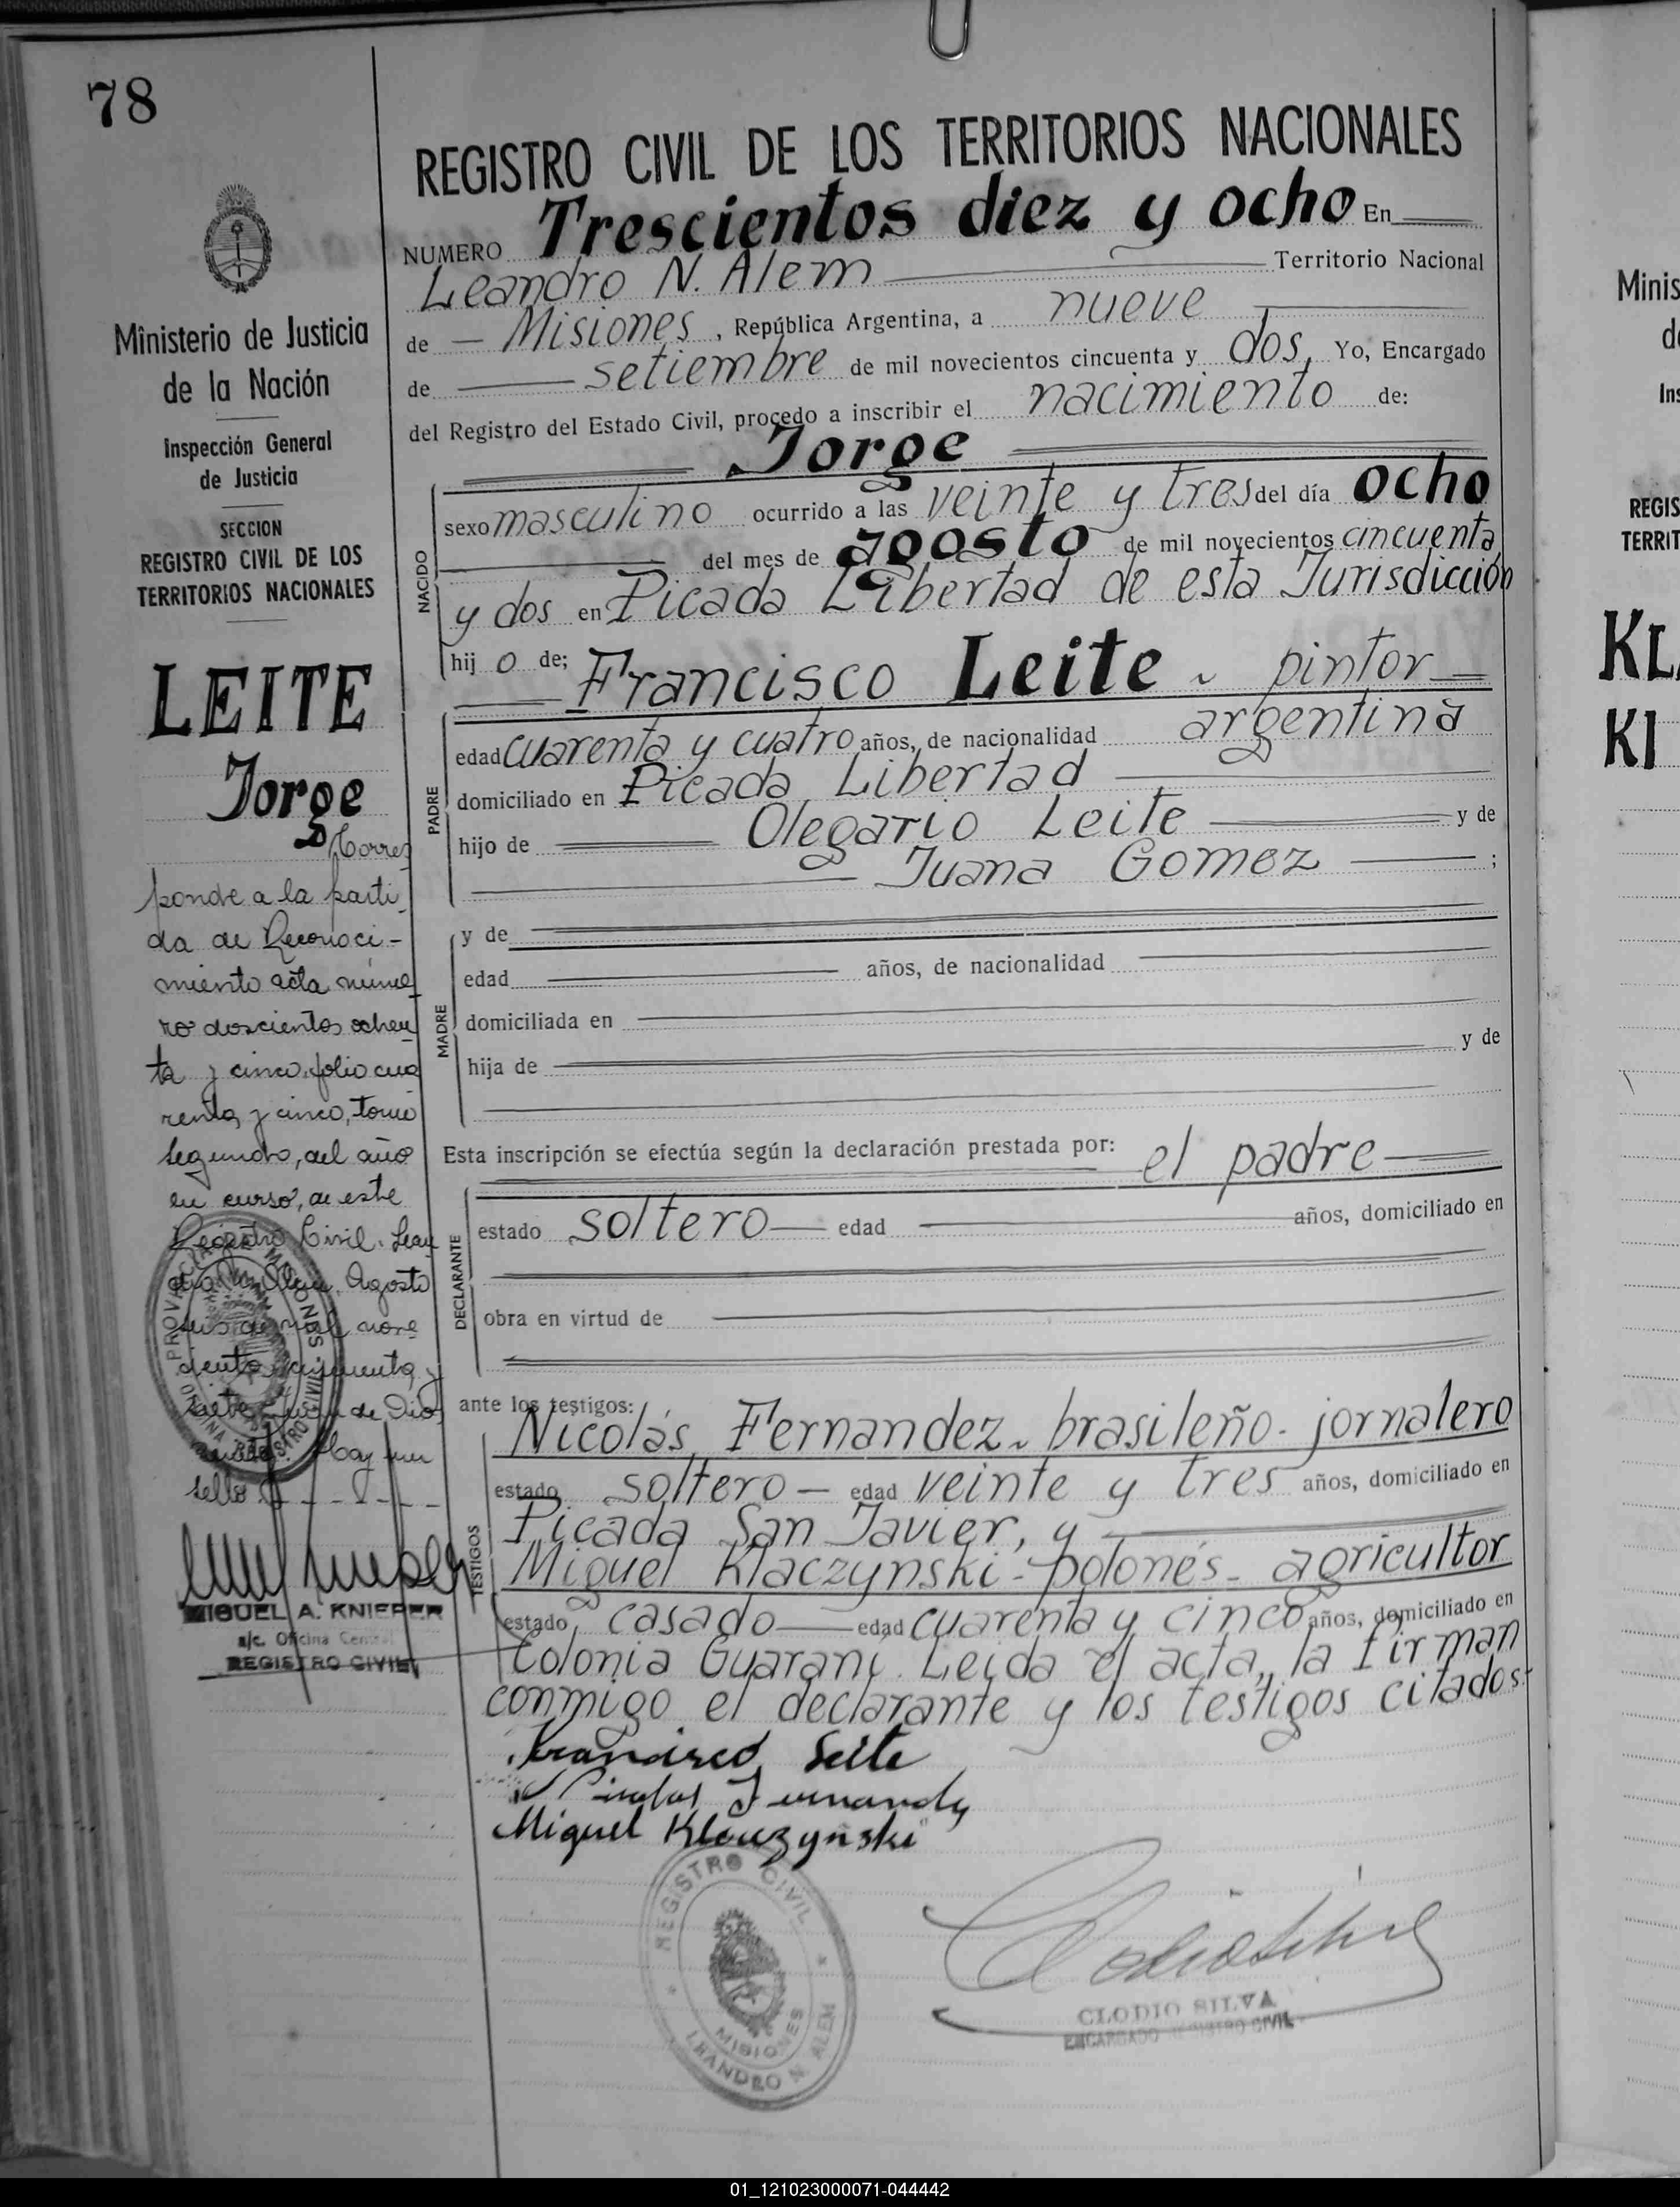 78
Ministerio de Justicia
de la Nación
Inspección General
de Justicia
SECCION
REGISTRO CIVIL DE LOS
TERRITORIOS NACIONALES
LEITE
Jorge
Corres
ponde a la parti-
da de Reconoci-
miento acta núme
ro doscientos ochen
ta y cinco, folio cua
renta y cinco, tomo
segundo, del año
en curso, de este
Registro Civil. Lean
dro N. Alem, Agosto
seis de mil nove
cientos cincuenta y
siete de Dios
Hay un
sello
MIGUEL A. KNIEPER
a/c. Oficina Central
REGISTRO CIVIL
REGISTRO CIVIL DE LOS TERRITORIOS NACIONALES
NUMERO Trescientos diez y ocho En
Leandro N. Alem Territorio Nacional
de Misiones, República Argentina, a nueve
de setiembre de mil novecientos cincuenta y dos, Yo, Encargado
del Registro del Estado Civil, procedo a inscribir el nacimiento de:
Jorge
NACIDO
sexo masculino ocurrido a las veinte y tres del día ocho
del mes de agosto de mil novecientos cincuenta
y dos en Picada Libertad de esta Jurisdicción
hij o de;
Francisco Leite - pintor
PADRE
edad cuarenta y cuatro años, de nacionalidad argentina
domiciliado en Picada Libertad
hijo de Olegario Leite y de
Juana Gomez ;
MADRE
y de
edad años, de nacionalidad
domiciliada en
hija de y de
Esta inscripción se efectúa según la declaración prestada por: el padre
DECLARANTE
estado soltero edad años, domiciliado en
obra en virtud de
ante los testigos:
TESTIGOS
Nicolás Fernandez - brasileño - jornalero
estado soltero - edad veinte y tres años, domiciliado en
Picada San Javier, y
Miguel Klaczynski - polonés - agricultor
estado casado edad cuarenta y cinco años, domiciliado en
Colonia Guaraní. Leída el acta, la firman
conmigo el declarante y los testigos citados-
Francisco Leite
Nicolas Fernandez
Miguel Klaczynski
REGISTRO CIVIL
MISIONES
LEANDRO N. ALEM
CLODIO SILVA
ENCARGADO REGISTRO CIVIL
Minis
d
Ins
REGIS
TERRIT
KL
KI
01_121023000071-044442